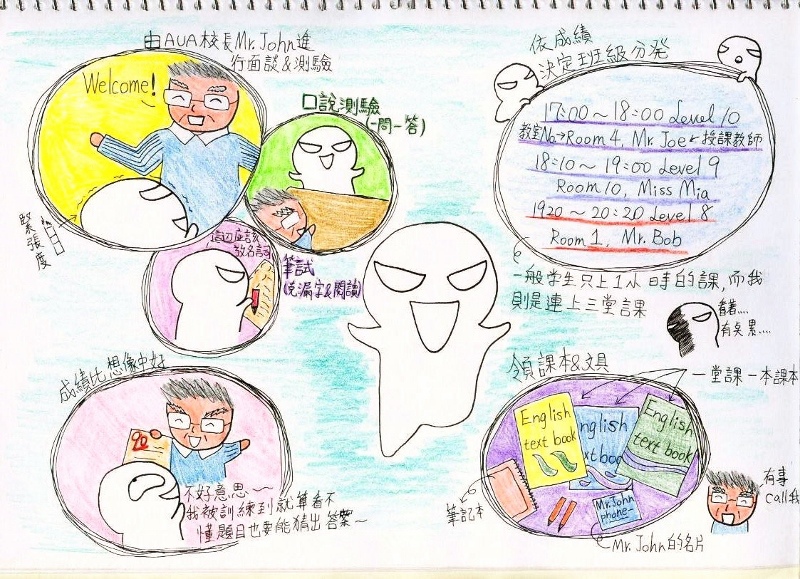 由AUA校長Mr.John進
行面談&測驗
Welcome!
緊張度
口說測驗
(一問一答)
這边应該
教名詞
筆試
(克漏字&閱讀)
成績比想像中好
90
不好意思~~
我被訓練到就算看不
懂題目也要能猜出答案~
依成績
決定班級分発
17:00~18:00 Level 10
教室No→Room 4, Mr. Joe←授課教師
18:10~19:00 Level 9
Room 10, Miss Mia
1920~20:20 Level 8
Room 1, Mr. Bob
一般学生只上1小時的課,而我
則是連上三堂課
有矣累....
領課本&文具
一堂課一本課本
English
text book
English
text book
English
text book
Mr.John
phone~
筆記本
Mr.John的名片
有事
call我